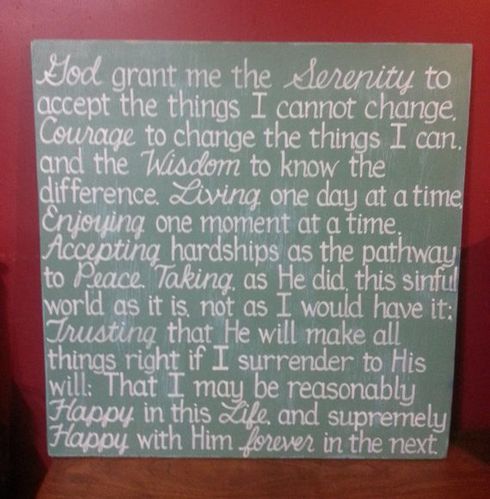 God grant me the Serenity to
accept the things I cannot change,
Courage to change the things I can,
and the Wisdom to know the
difference. Living one day at a time,
Enjoying one moment at a time,
Accepting hardships as the pathway
to Peace. Taking, as He did, this sinful
world as it is, not as I would have it;
Trusting that He will make all
things right if I surrender to His
will; That I may be reasonably
Happy in this Life, and supremely
Happy with Him forever in the next.